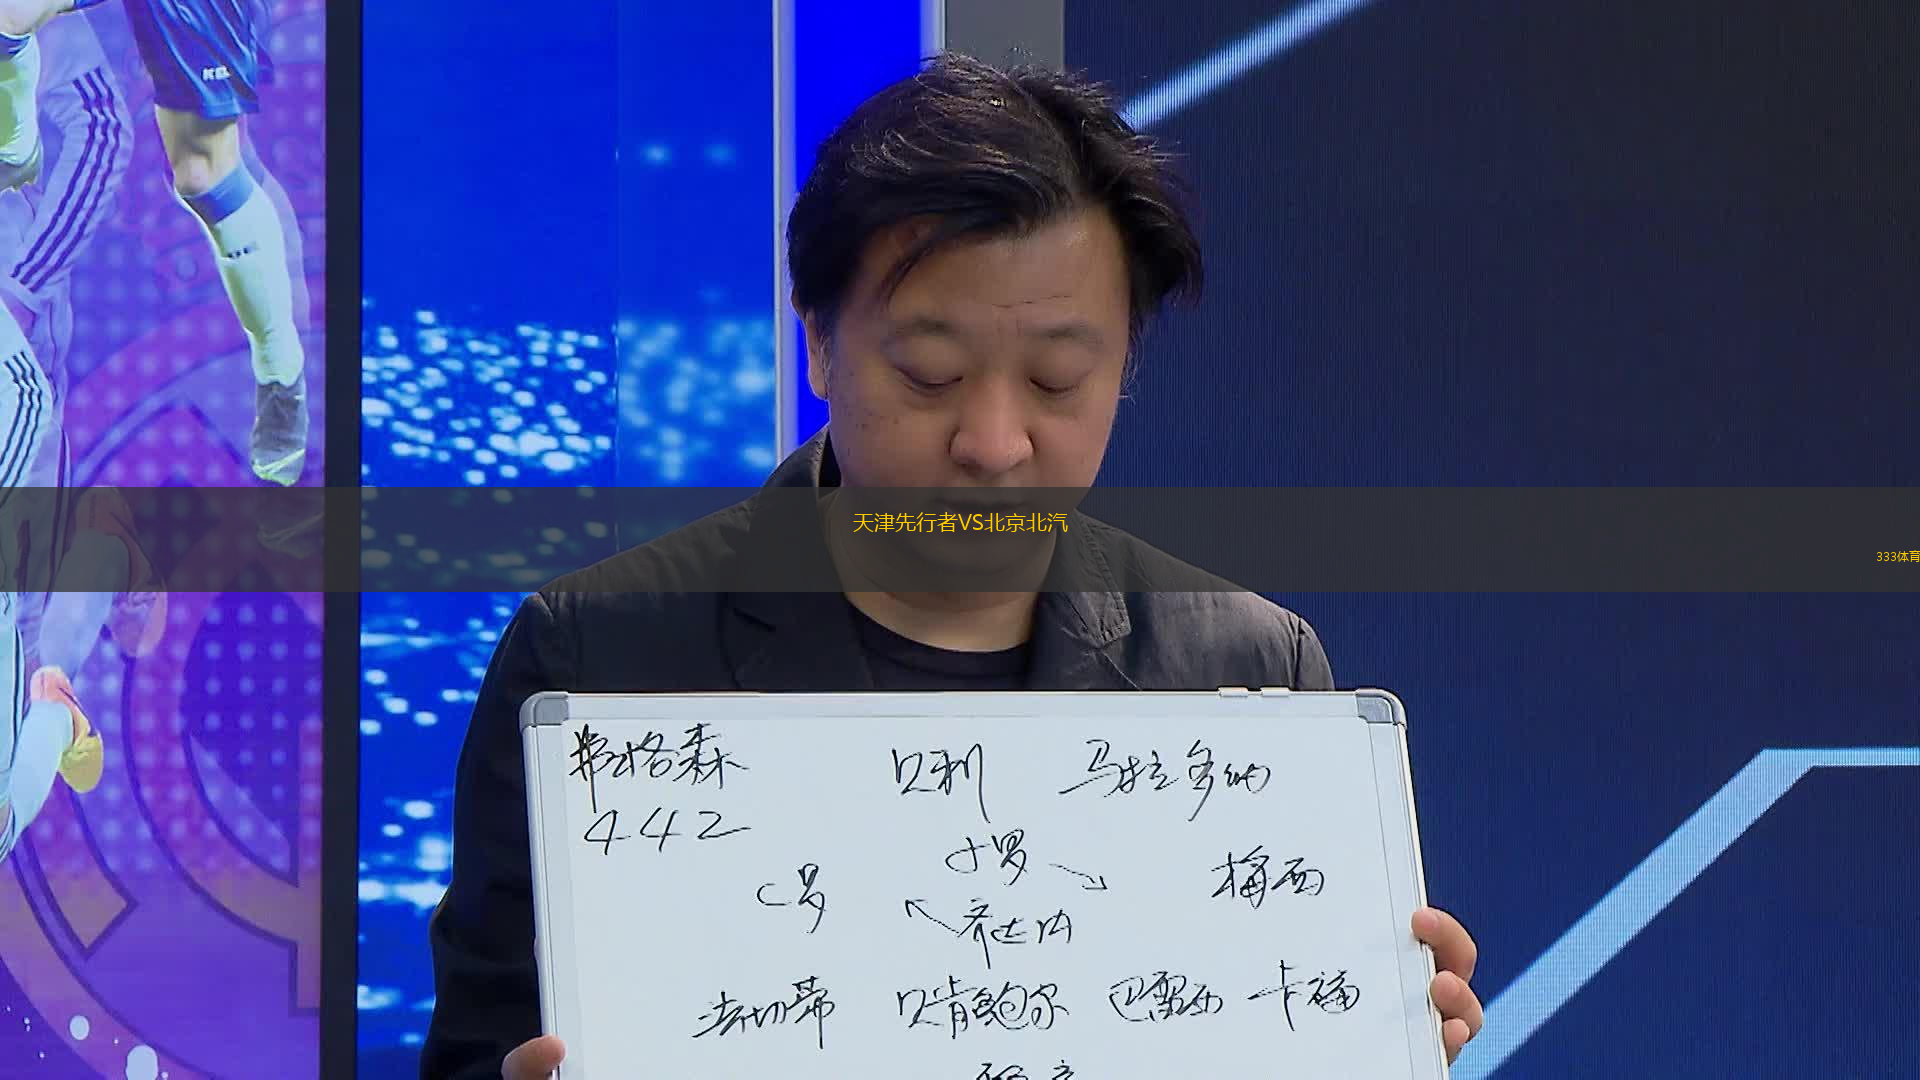 天津先行者VS北京北汽
333体育
弗格森 贝利 马拉多纳
442
小罗
C罗 梅西
齐达内
法切蒂 贝肯鲍尔 巴雷西 卡福